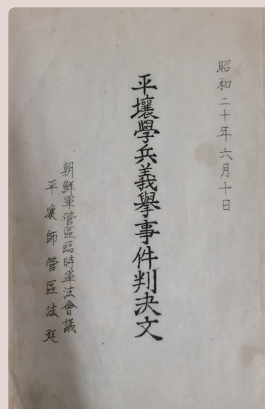 昭和二十年六月十日
平壤學兵義擧事件判決文
朝鮮軍管區臨時軍法會議
平壤師管區法廷